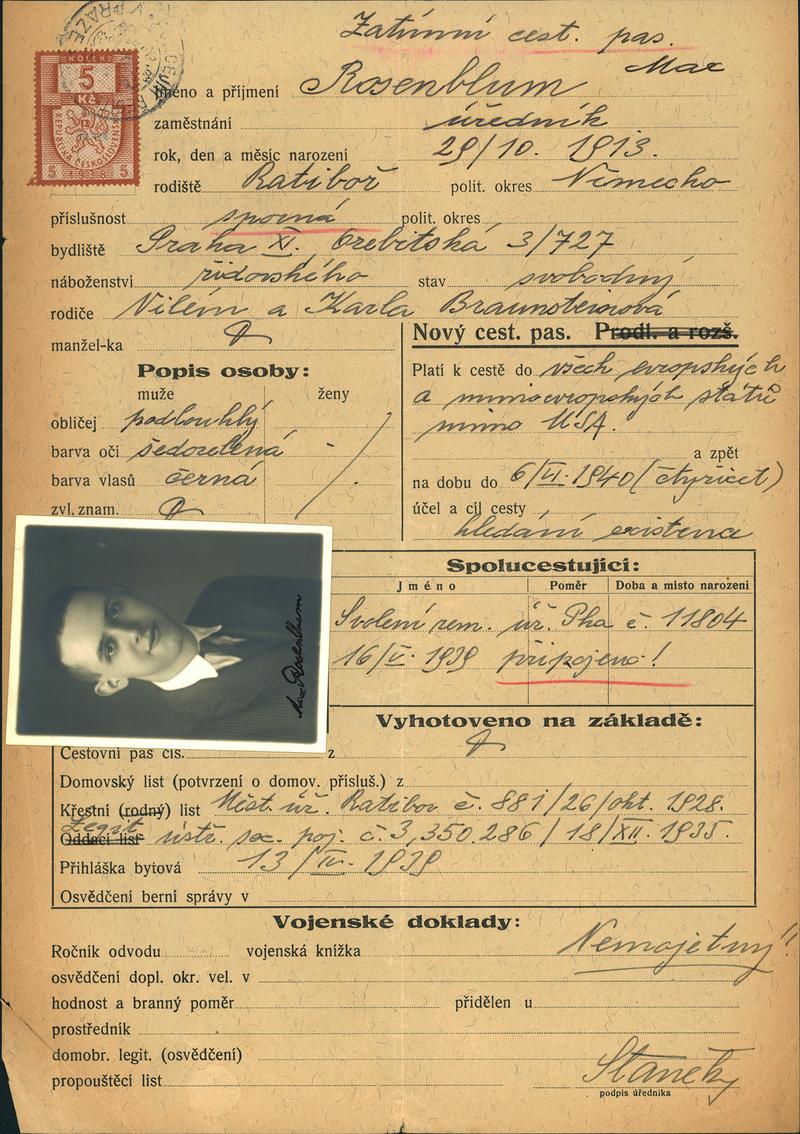 Zatímní cest. pas.
KOLEK
5
Kč
REPUBLIKA ČESKOSLOVENSKÁ
5 1938 5
Jméno a příjmení Rosenblum Max
zaměstnání úředník
rok, den a měsíc narození 29/10. 1913.
rodiště Ratiboř polit. okres Německo
příslušnost sporná polit. okres
bydliště Praha XI. Orebitská 3/727
náboženství židovského stav svobodný
rodiče Vilém a Karla Braunsteinová
manžel-ka
Nový cest. pas. Prodl. a rozš.
Popis osoby:
muže ženy
obličej podlouhlý
barva očí šedozelená
barva vlasů černá
zvl. znam.
Platí k cestě do všech evropských
a mimoevropských států
mimo USA.
a zpět
na dobu do 6/VI. 1940 (čtyřicet)
účel a cíl cesty
hledání existence
Max Rosenblum
Spolucestující:
Jméno Poměr Doba a místo narození
Svolení zem. úř. Pha č. 11804
16/V. 1939 připojeno!
Vyhotoveno na základě:
Cestovní pas čís. z
Domovský list (potvrzení o domov. přísluš.) z
Křestní (rodný) list Míst. úř. Ratibor č. 881/26/okt. 1928.
Legit
Oddací list ústř. soc. poj. č. 3,350.286/18/XII. 1935.
Přihláška bytová 13/IV. 1939
Osvědčení berní správy v
Vojenské doklady:
Ročník odvodu vojenská knížka
Nemajetný!
osvědčení dopl. okr. vel. v
hodnost a branný poměr přidělen u
prostředník
domobr. legit. (osvědčení)
propouštěcí list
Staněk
podpis úředníka